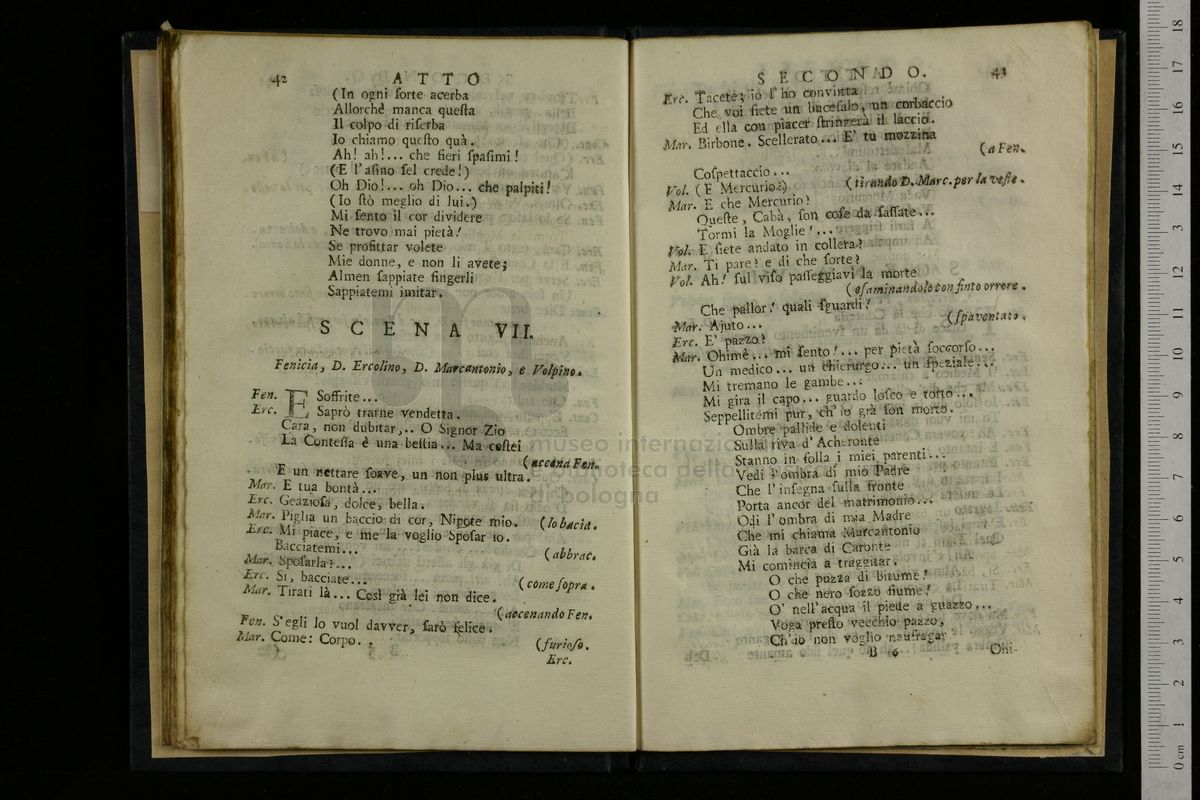 42 ATTO
(In ogni ſorte acerba
Allorchè manca queſta
Il colpo di riſerba
Io chiamo queſto quà.
Ah! ah!... che fieri ſpaſimi!
(E l'aſino ſel crede!)
Oh Dio!... oh Dio... che palpiti!
(Io ſtò meglio di lui.)
Mi ſento il cor dividere
Ne trovo mai pietà!
Se profittar volete
Mie donne, e non li avete;
Almen ſappiate fingerli
Sappiatemi imitar.
SCENA VII.
Fenicia, D. Ercolino, D. Marcantonio, e Volpino.
Fen. E Soffrite...
Erc. Saprò trarne vendetta.
Cara, non dubitar,.. O Signor Zio
La Conteſſa è una beſtia... Ma coſtei
(accèna Fen.
E un nettare ſoave, un non plus ultra.
Mar. E tua bontà...
Erc. Geazioſa, dolce, bella.
Mar. Piglia un baccio di cor, Nipote mio. (lo bacia.
Erc. Mi piace, e me la voglio Spoſar io.
Bacciatemi... (abbrac.
Mar. Spoſarla?...
Erc. Si, bacciate... (come ſopra.
Mar. Tirati là... Così già lei non dice.
(accenando Fen.
Fen. S'egli lo vuol davver, ſarò felice.
Mar. Come: Corpo.. (furioſo.
Erc.
SECONDO. 43
Erc. Tacete; io l'ho convinta
Che voi ſiete un buceſalo, un corbaccio
Ed ella con piacer ſtringerà il laccio.
Mar. Birbone. Scellerato... E' tu mozzina
(a Fen.
Coſpettaccio...
Vol. (E Mercurio?) (tirando D. Marc. per la veſte.
Mar. E che Mercurio?
Queſte, Cabà, ſon coſe da ſaſſate...
Tormi la Moglie!...
Vol. E ſiete andato in collera?
Mar. Ti pare? e di che ſorte?
Vol. Ah! ſul viſo paſſeggiavi la morte
(eſaminandolo con finto orrere.
Che pallor! quali ſguardi!
Mar. Ajuto... (ſpaventato.
Erc. E' pazzo?
Mar. Ohimè... mi ſento!... per pietà ſoccorſo...
Un medico... un chierurgo... un ſpeziale...
Mi tremano le gambe...
Mi gira il capo... guardo loſco e torto...
Seppellitemi pur, ch'io già ſon morto.
Ombre pallide e dolenti
Sulla riva d'Acheronte
Stanno in folla i miei parenti...
Vedi l'ombra di mio Padre
Che l'inſegna ſulla fronte
Porta ancor del matrimonio...
Odi l'ombra di mia Madre
Che mi chiama Marcantonio
Già la barca di Caronte
Mi comincia a traggitar.
O che puzza di bitume!
O che nero ſozzo fiume!
O' nell'acqua il piede a guazzo...
Voga preſto vecchio pazzo,
Ch'io non voglio naufragar
B 6 Ohi-
museo internazionale
e biblioteca della musica
di bologna